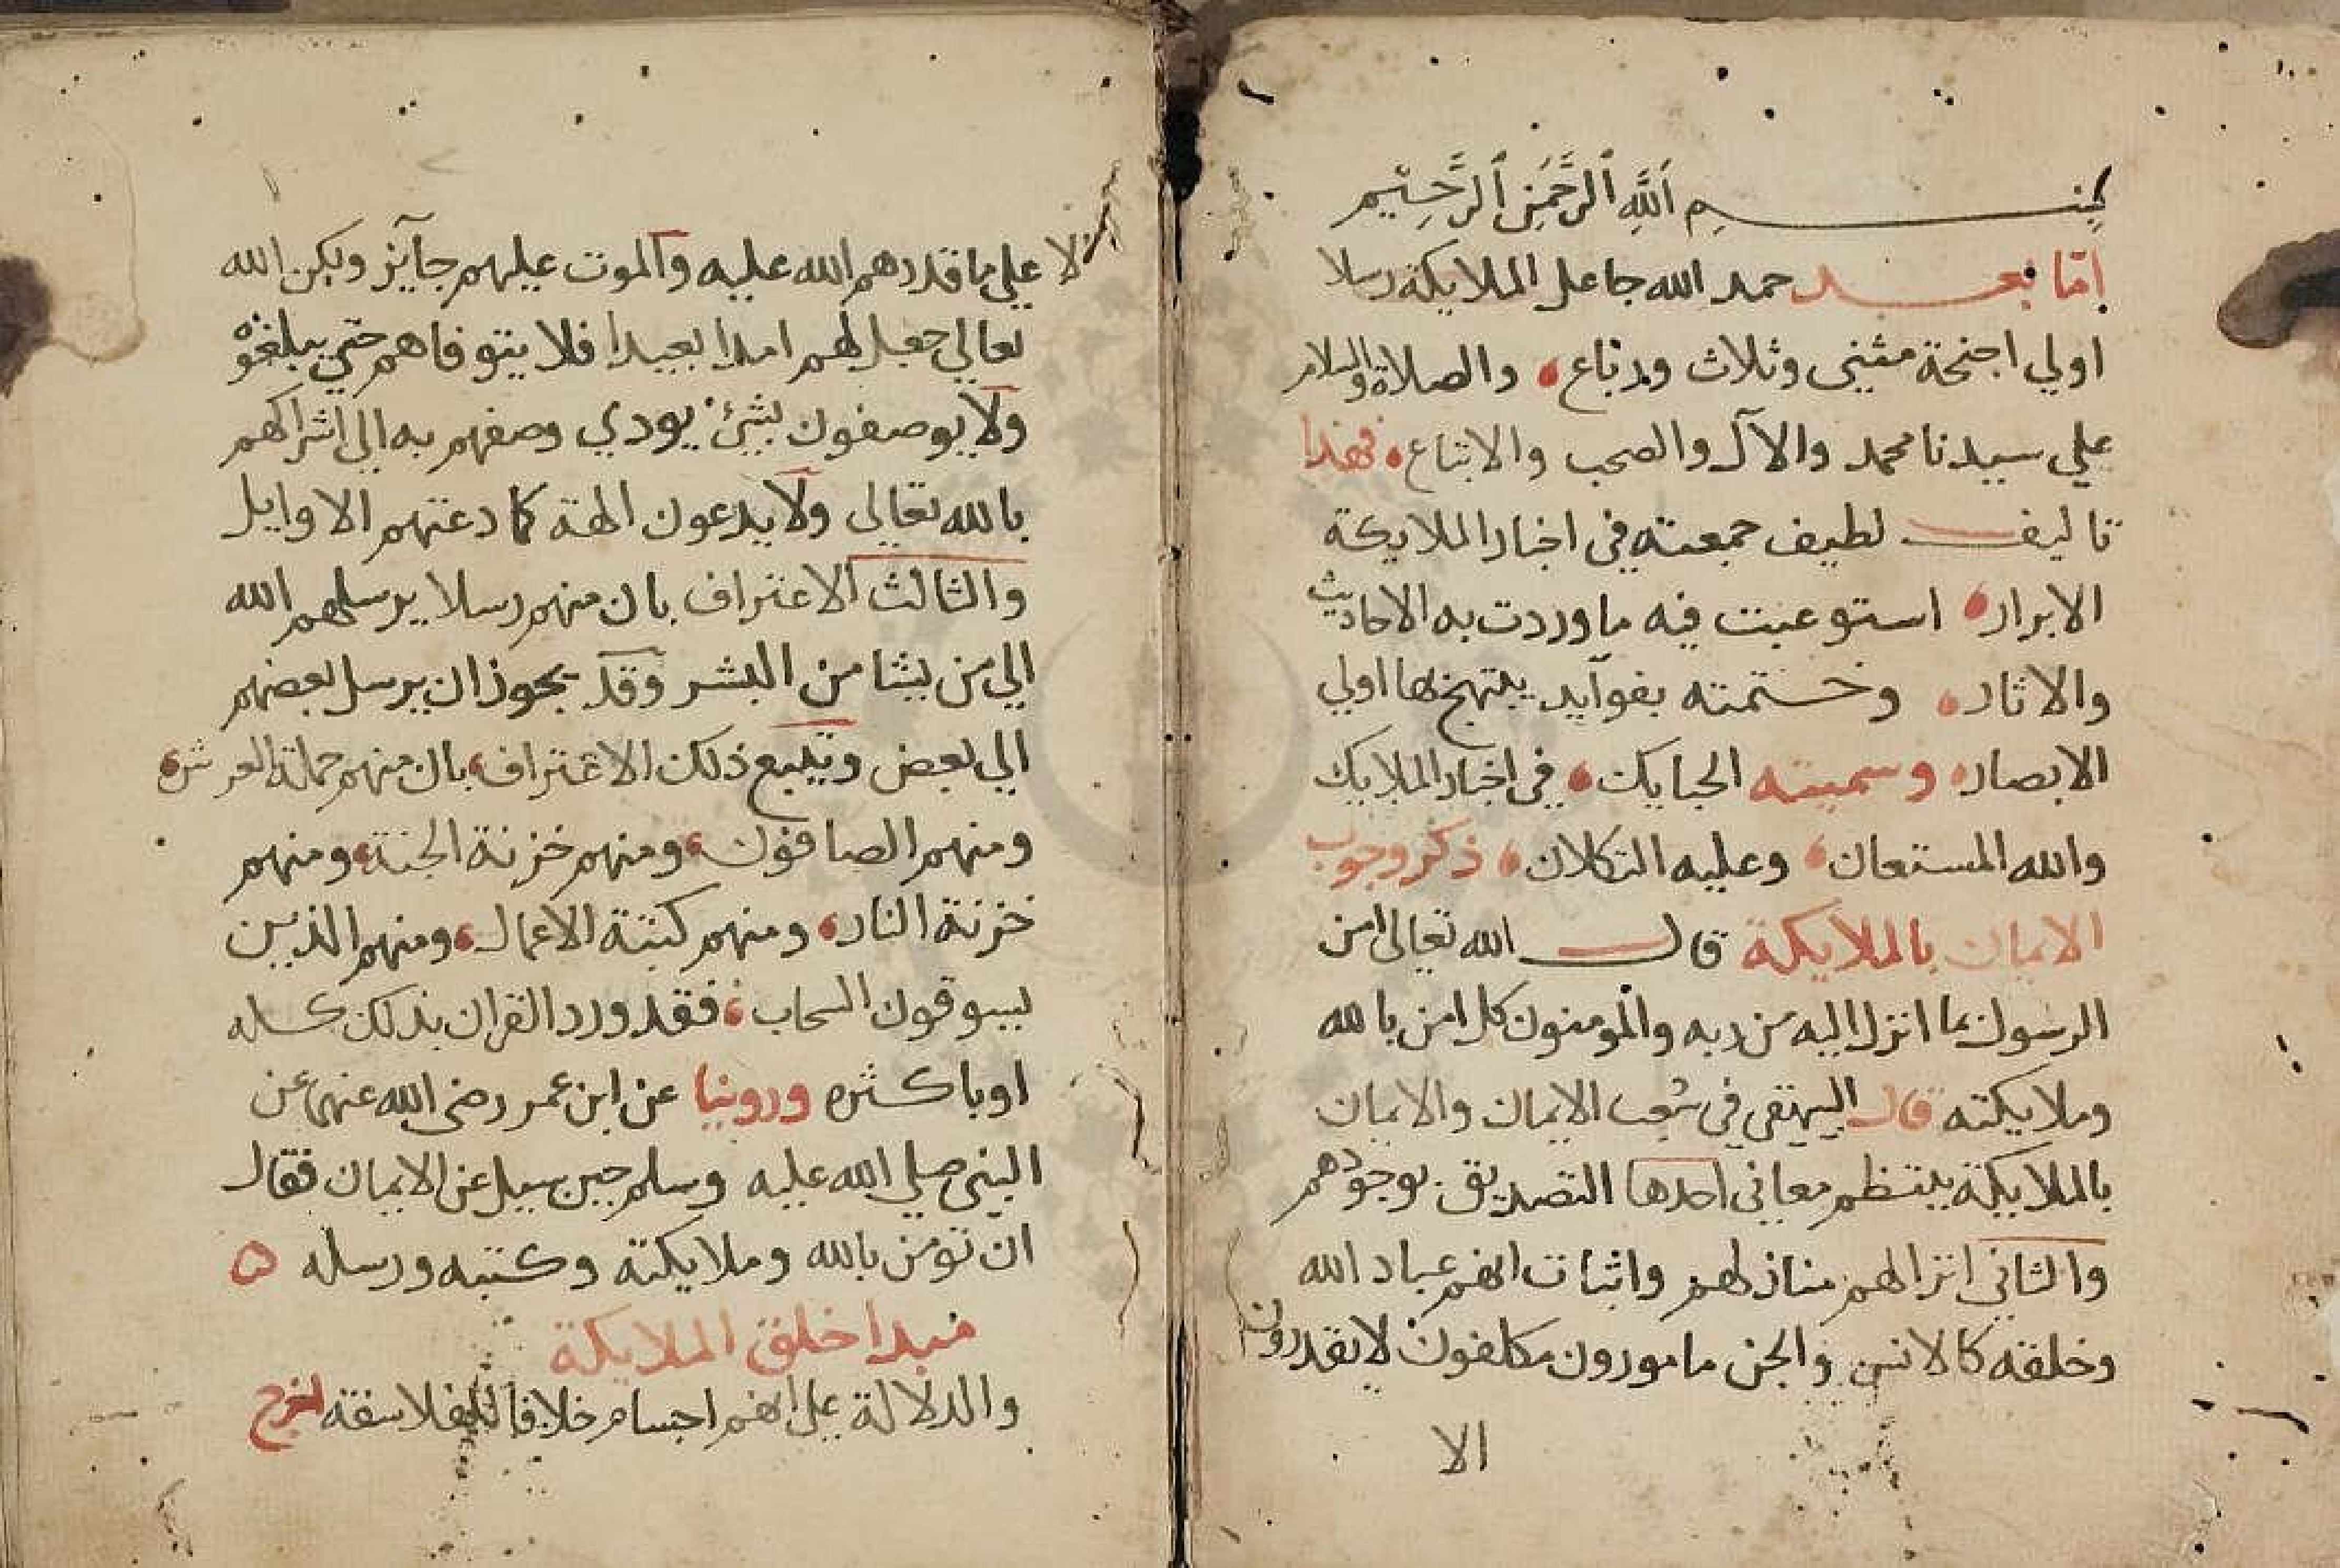 بِسْمِ اَللَّهِ اَلرَّحْمَنِ اَلرَّحِيْمِ
امّا بعد حمد الله جاعل الملايكة رسلا
اولي اجنحة مثنى وثلاث ورباع، والصلاة والسلام
علي سيدنا محمد والآل والصحب والاتباع، فهذا
تاليف لطيف جمعته في اخبار الملايكة
الابرار، استوعبت فيه ما وردت به الاحاديث
والاثار، وختمته بفوايد يبتهج بها اولي
الابصار، وسميته الحبايك، في اخبار الملايك
والله المستعان، وعليه التكلان، ذكر وجوب
الايمان بالملايكة قال الله تعالى امن
الرسول بما انزل اليه من ربه والمومنون كل امن بالله
وملايكته قال البيهقي في شعب الايمان والايمان
بالملايكة ينتظم معاني احدها التصديق بوجودهم
والثاني انزالهم منازلهم واثبات انهم عباد الله
وخلقه كالانس والجن مامورون مكلفون لا يقدرون
الا
الا علي ما قدرهم الله عليه والموت عليهم جآيز ولكن الله
تعالي جعل لهم امدا بعيدا فلا يتوفاهم حتي يبلغوه
ولا يوصفون بشئ يودي وصفهم به الي اشراكهم
بالله تعالي ولا يدعون الهة كما دعتهم الاوايل
والثالث الاعتراف بان منهم رسلا يرسلهم الله
الي من يشا من البشر وقد يجوز ان يرسل بعضهم
الي بعض ويتبع ذلك الاعتراف، بان منهم حملة العرش،
ومنهم الصافون، ومنهم خزنة الجنة، ومنهم
خزنة النار، ومنهم كتبة الاعمال، ومنهم الذين
يسوقون السحاب، فقد ورد القران بذلك كله
او باكثره وروينا عن ابن عمر رضي الله عنهما عن
النبي صلي الله عليه وسلم حين سيل عن الايمان فقال
ان تومن بالله وملايكته وكتبه ورسله ه
مبدا خلق الملايكة
والدلالة علي انهم اجسام خلافا للفلاسفة اخرج